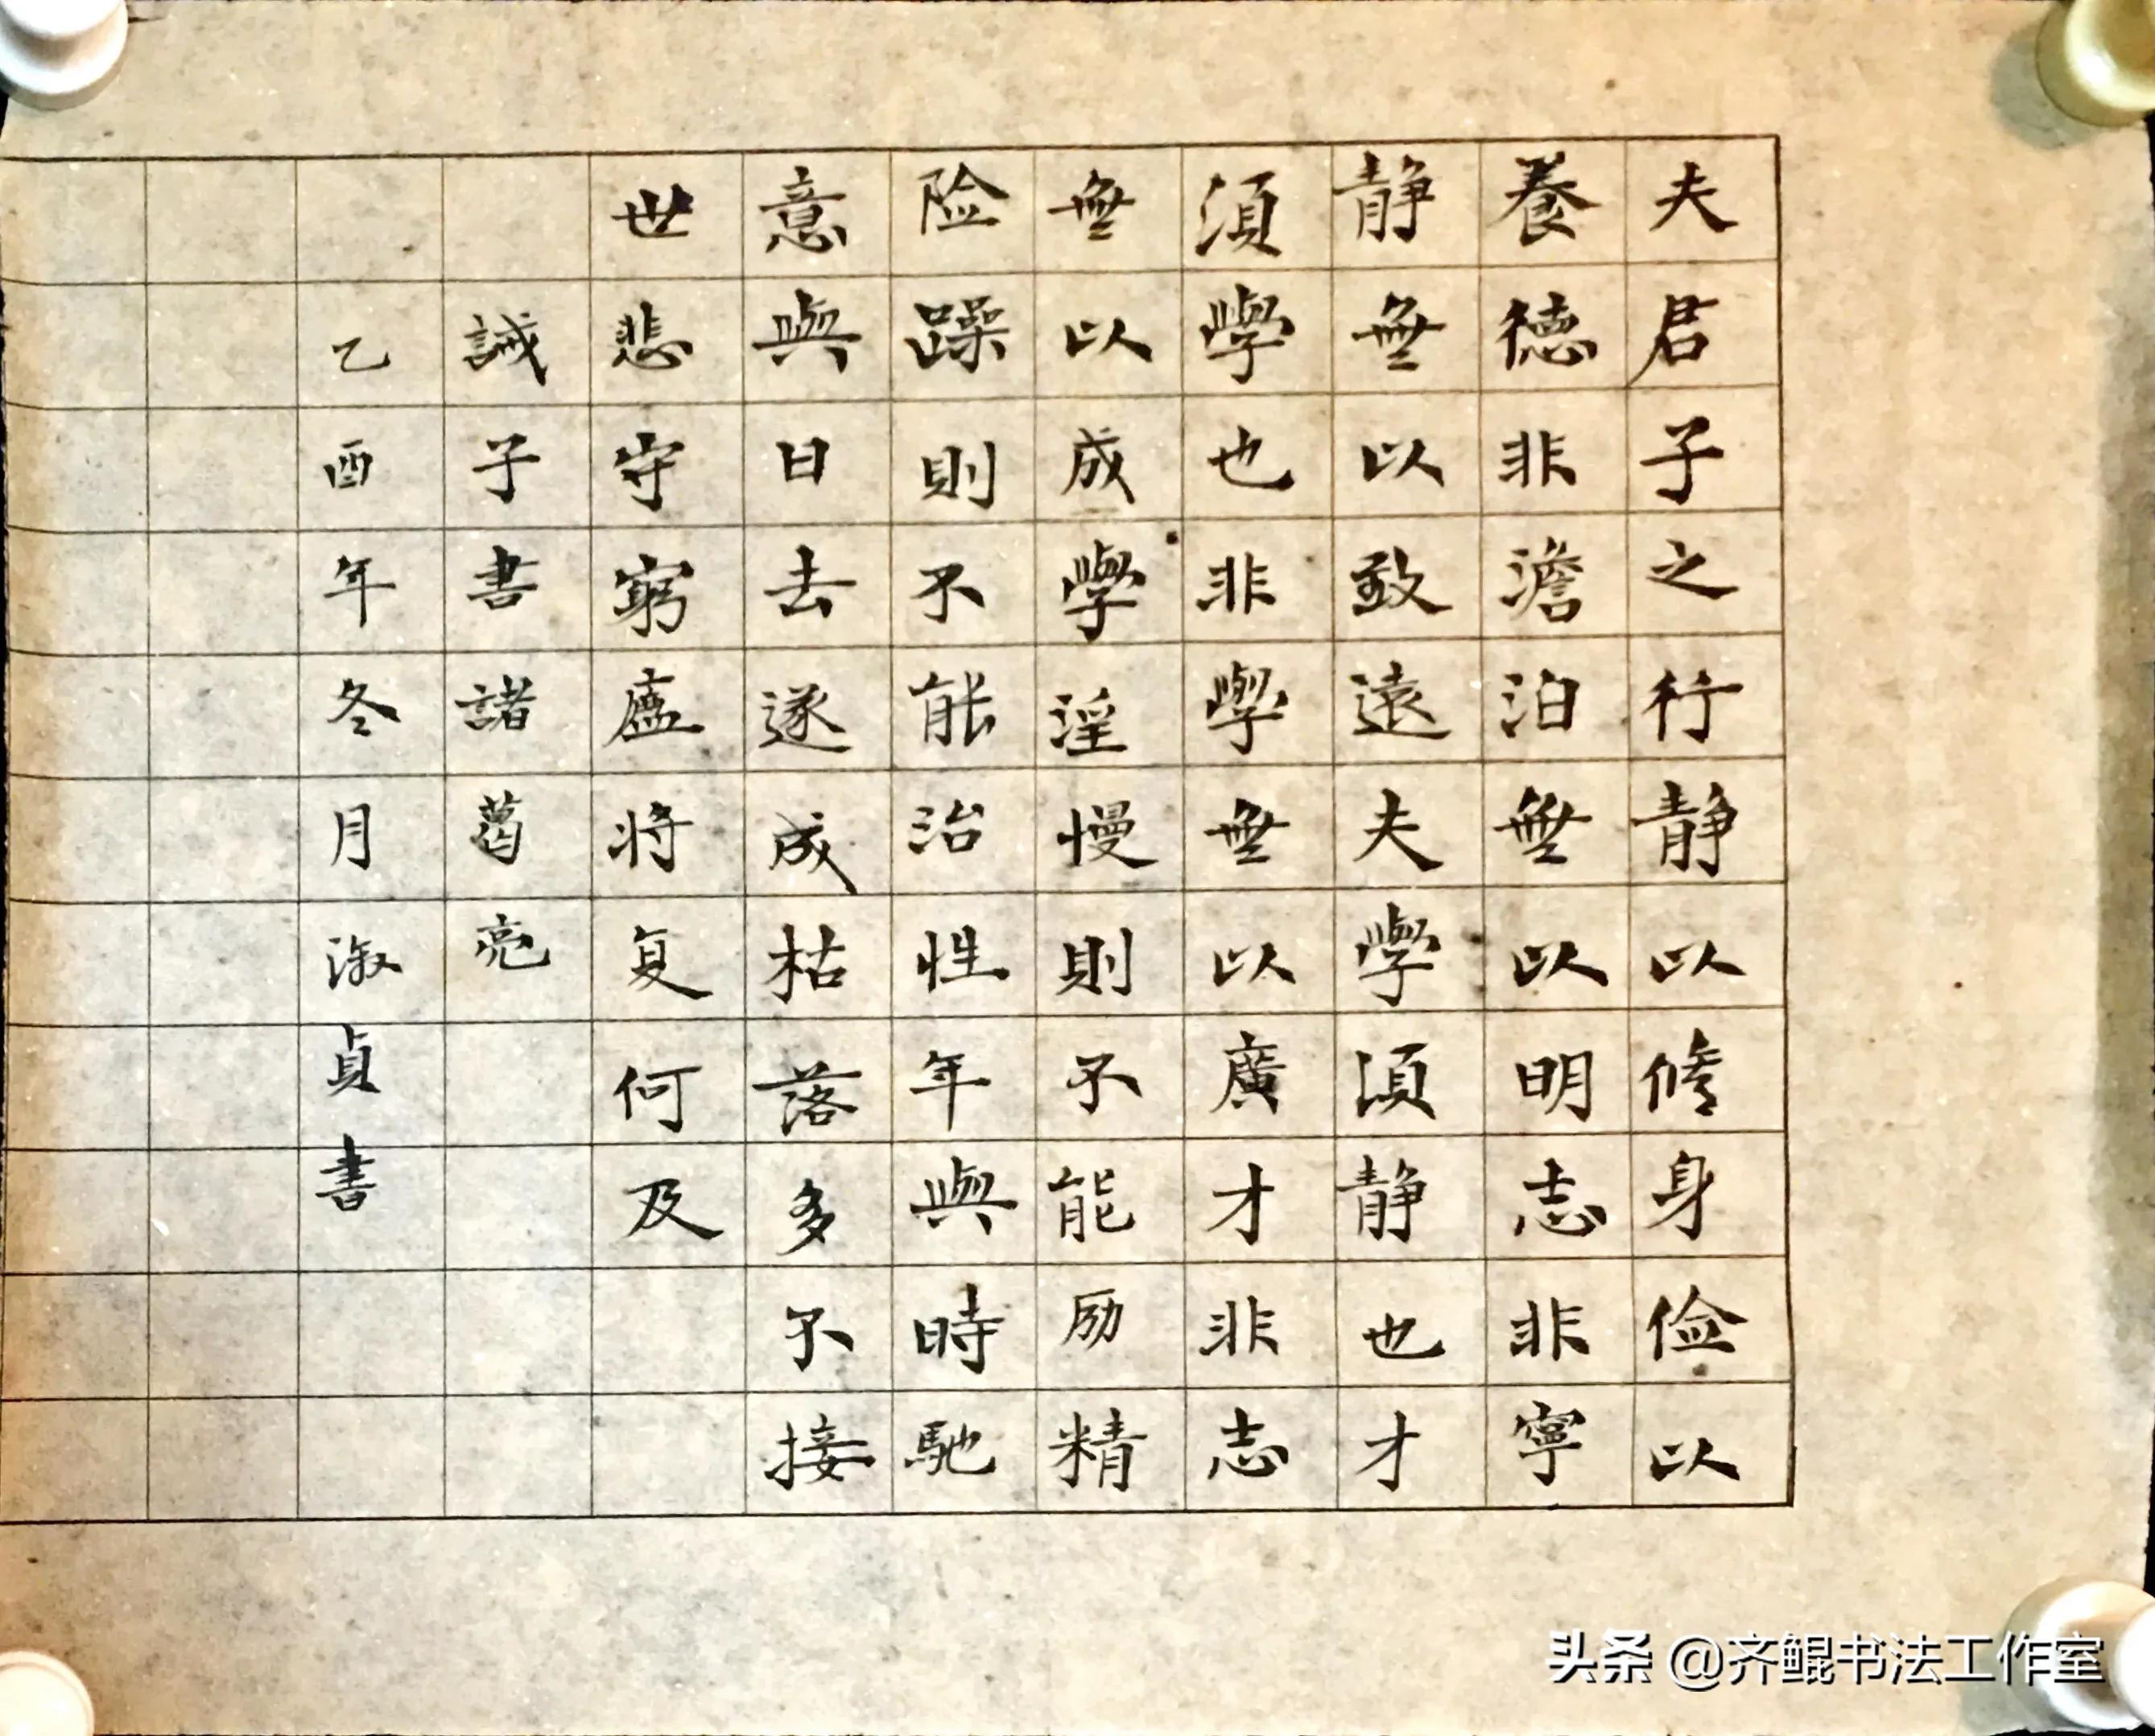 夫君子之行静以修身俭以
養德非澹泊無以明志非寧
静無以致遠夫學須静也才
須學也非學無以廣才非志
無以成學淫慢則不能励精
险躁則不能治性年與時馳
意與日去遂成枯落多不接
世悲守窮廬将复何及
誡子書諸葛亮
乙酉年冬月淑貞書
头条 @齐鲲书法工作室